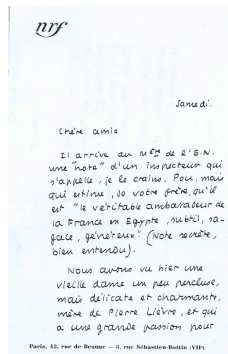 nrf
Samedi.
Chère amie
Il arrive au Mère de l'E.N.
une "note" d'un inspecteur qui
s'appelle, je le crains. Pou, mais
qui estime, de votre frère, qu'il
est "le véritable ambassadeur de
la France en Egypte, subtil, sa-
gace, généreux" (Note secrète,
bien entendu).
Nous avons vu hier une
vieille dame un peu percluse,
mais délicate et charmante,
mère de Pierre Lièvre, et qui
a une grande passion pour
Paris, 43, rue de Beaune — 5, rue Sébastien-Bottin (VIIᵉ)